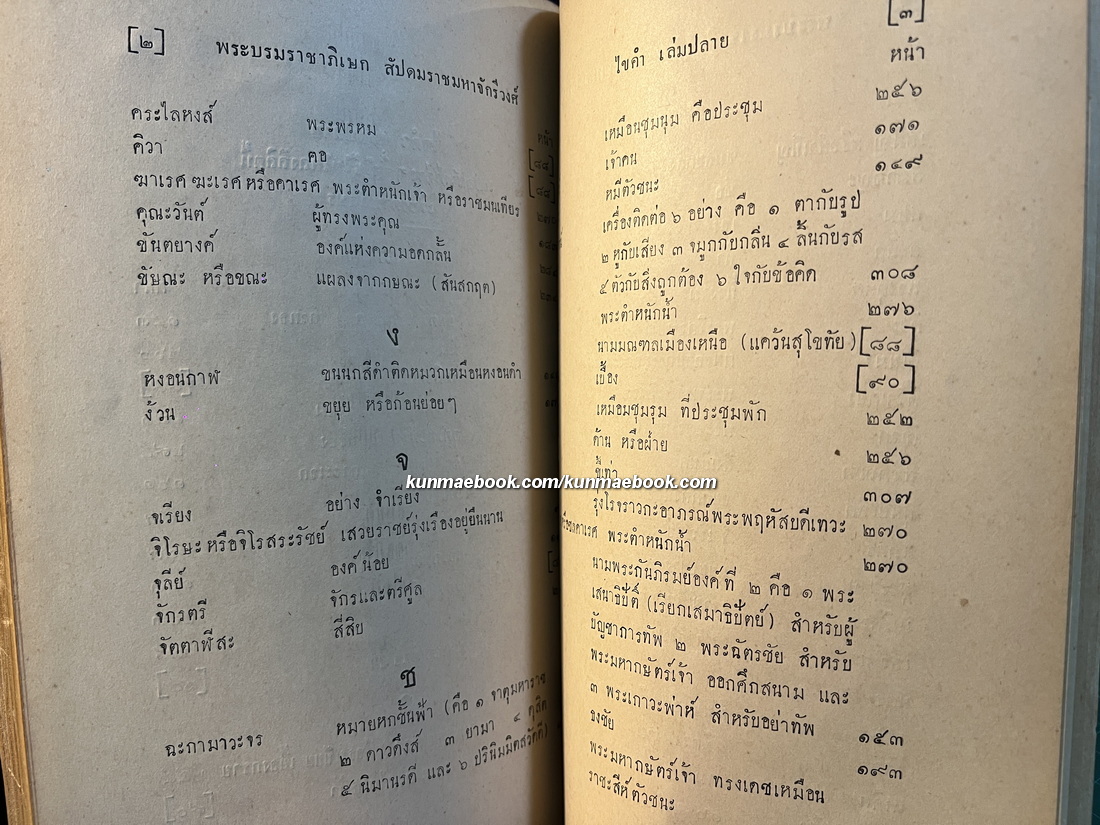 [๒] พระบรมราชาภิเษก สัปดมราชมหาจักรีวงศ์
หน้า
คระไลหงส์ พระพรหม [๘๘]
คิวา คอ [๘๘]
ฆาเรศ ฆะเรศ หรือคาเรศ พระตำหนักเจ้า หรือราชมนเทียร
คุณะวันต์ ผู้ทรงพระคุณ
ขันตยางค์ องค์แห่งความอดกลั้น
ขัษณะ หรือขณะ แผลงจากกษณะ (สันสกฤต)
ง
หงอนกาฬ ขนนกสีดำติดหมวกเหมือนหงอนดำ
ง้วน ขยุย หรือก้อนย่อยๆ
จ
จเรียง อย่าง จำเรียง
จิโรษะ หรือจิโรสระรัชย์ เสวยราชย์รุ่งเรืองอยู่ยืนนาน
จุลีย์ องค์น้อย
จักรตรี จักรและตรีศูล
จัตตาฬีสะ สี่สิบ
ช
ฉะกามาวะจร หมายหกชั้นฟ้า (คือ ๑ จาตุมหาราช
๒ ดาวดึงส์ ๓ ยามา ๔ ดุสิต
๕ นิมานรดี และ ๖ ปรินิมมิตสวัตดี)
[๓]
ไขคำ เล่มปลาย
หน้า
เหมือนชุมนุม คือประชุม ๒๕๖
เจ้าคน ๑๗๑
หมีตัวชนะ ๑๔๙
เครื่องติดต่อ ๖ อย่าง คือ ๑ ตากับรูป
๒ หูกับเสียง ๓ จมูกกับกลิ่น ๔ ลิ้นกับรส
๕ ตัวกับสิ่งถูกต้อง ๖ ใจกับข้อคิด ๓๐๘
พระตำหนักน้ำ ๒๗๖
นามมณฑลเมืองเหนือ (แคว้นสุโขทัย) [๘๘]
เยื้อง [๙๐]
เหมือมชุมรุม ที่ประชุมพัก ๒๕๒
ด้าน หรือฝ่าย ๒๕๖
ขี้เท่า ๓๐๗
รุ่งโรจราวกะอาภรณ์พระพฤหัสบดีเทวะ ๒๗๐
พระตำหนักน้ำ ๒๗๐
นามพระกันภิรมย์องค์ที่ ๒ คือ ๑ พระ
เสนาธิปัติ์ (เรียกเสมาธิปัตย์) สำหรับผู้
บัญชาการทัพ ๒ พระฉัตรชัย สำหรับ
พระมหากษัตร์เจ้า ออกศึกสนาม และ
๓ พระเกาวะพ่าห์ สำหรับอย่าทัพ
ธงชัย ๑๕๓
พระมหากษัตร์เจ้า ทรงเดชเหมือน ๑๙๓
ราชะสีห์ตัวชนะ
kunmaebook.com/kunmaebook.com